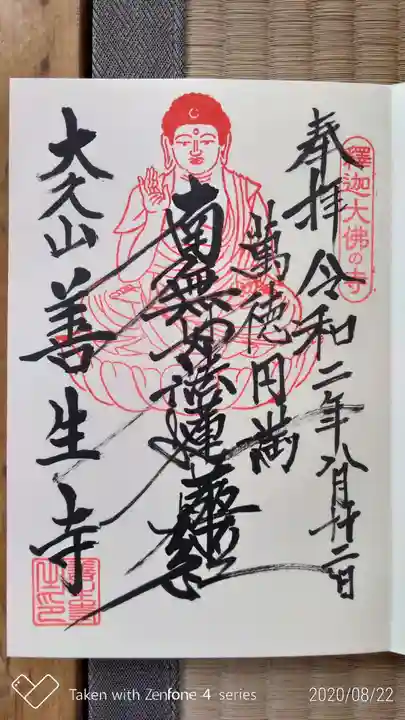 釋迦大佛の寺
奉拝 令和二年八月廿二日
萬徳円満
南無妙法蓮華経
大久山 善生寺
Taken with Zenfone 4 series
2020/08/22